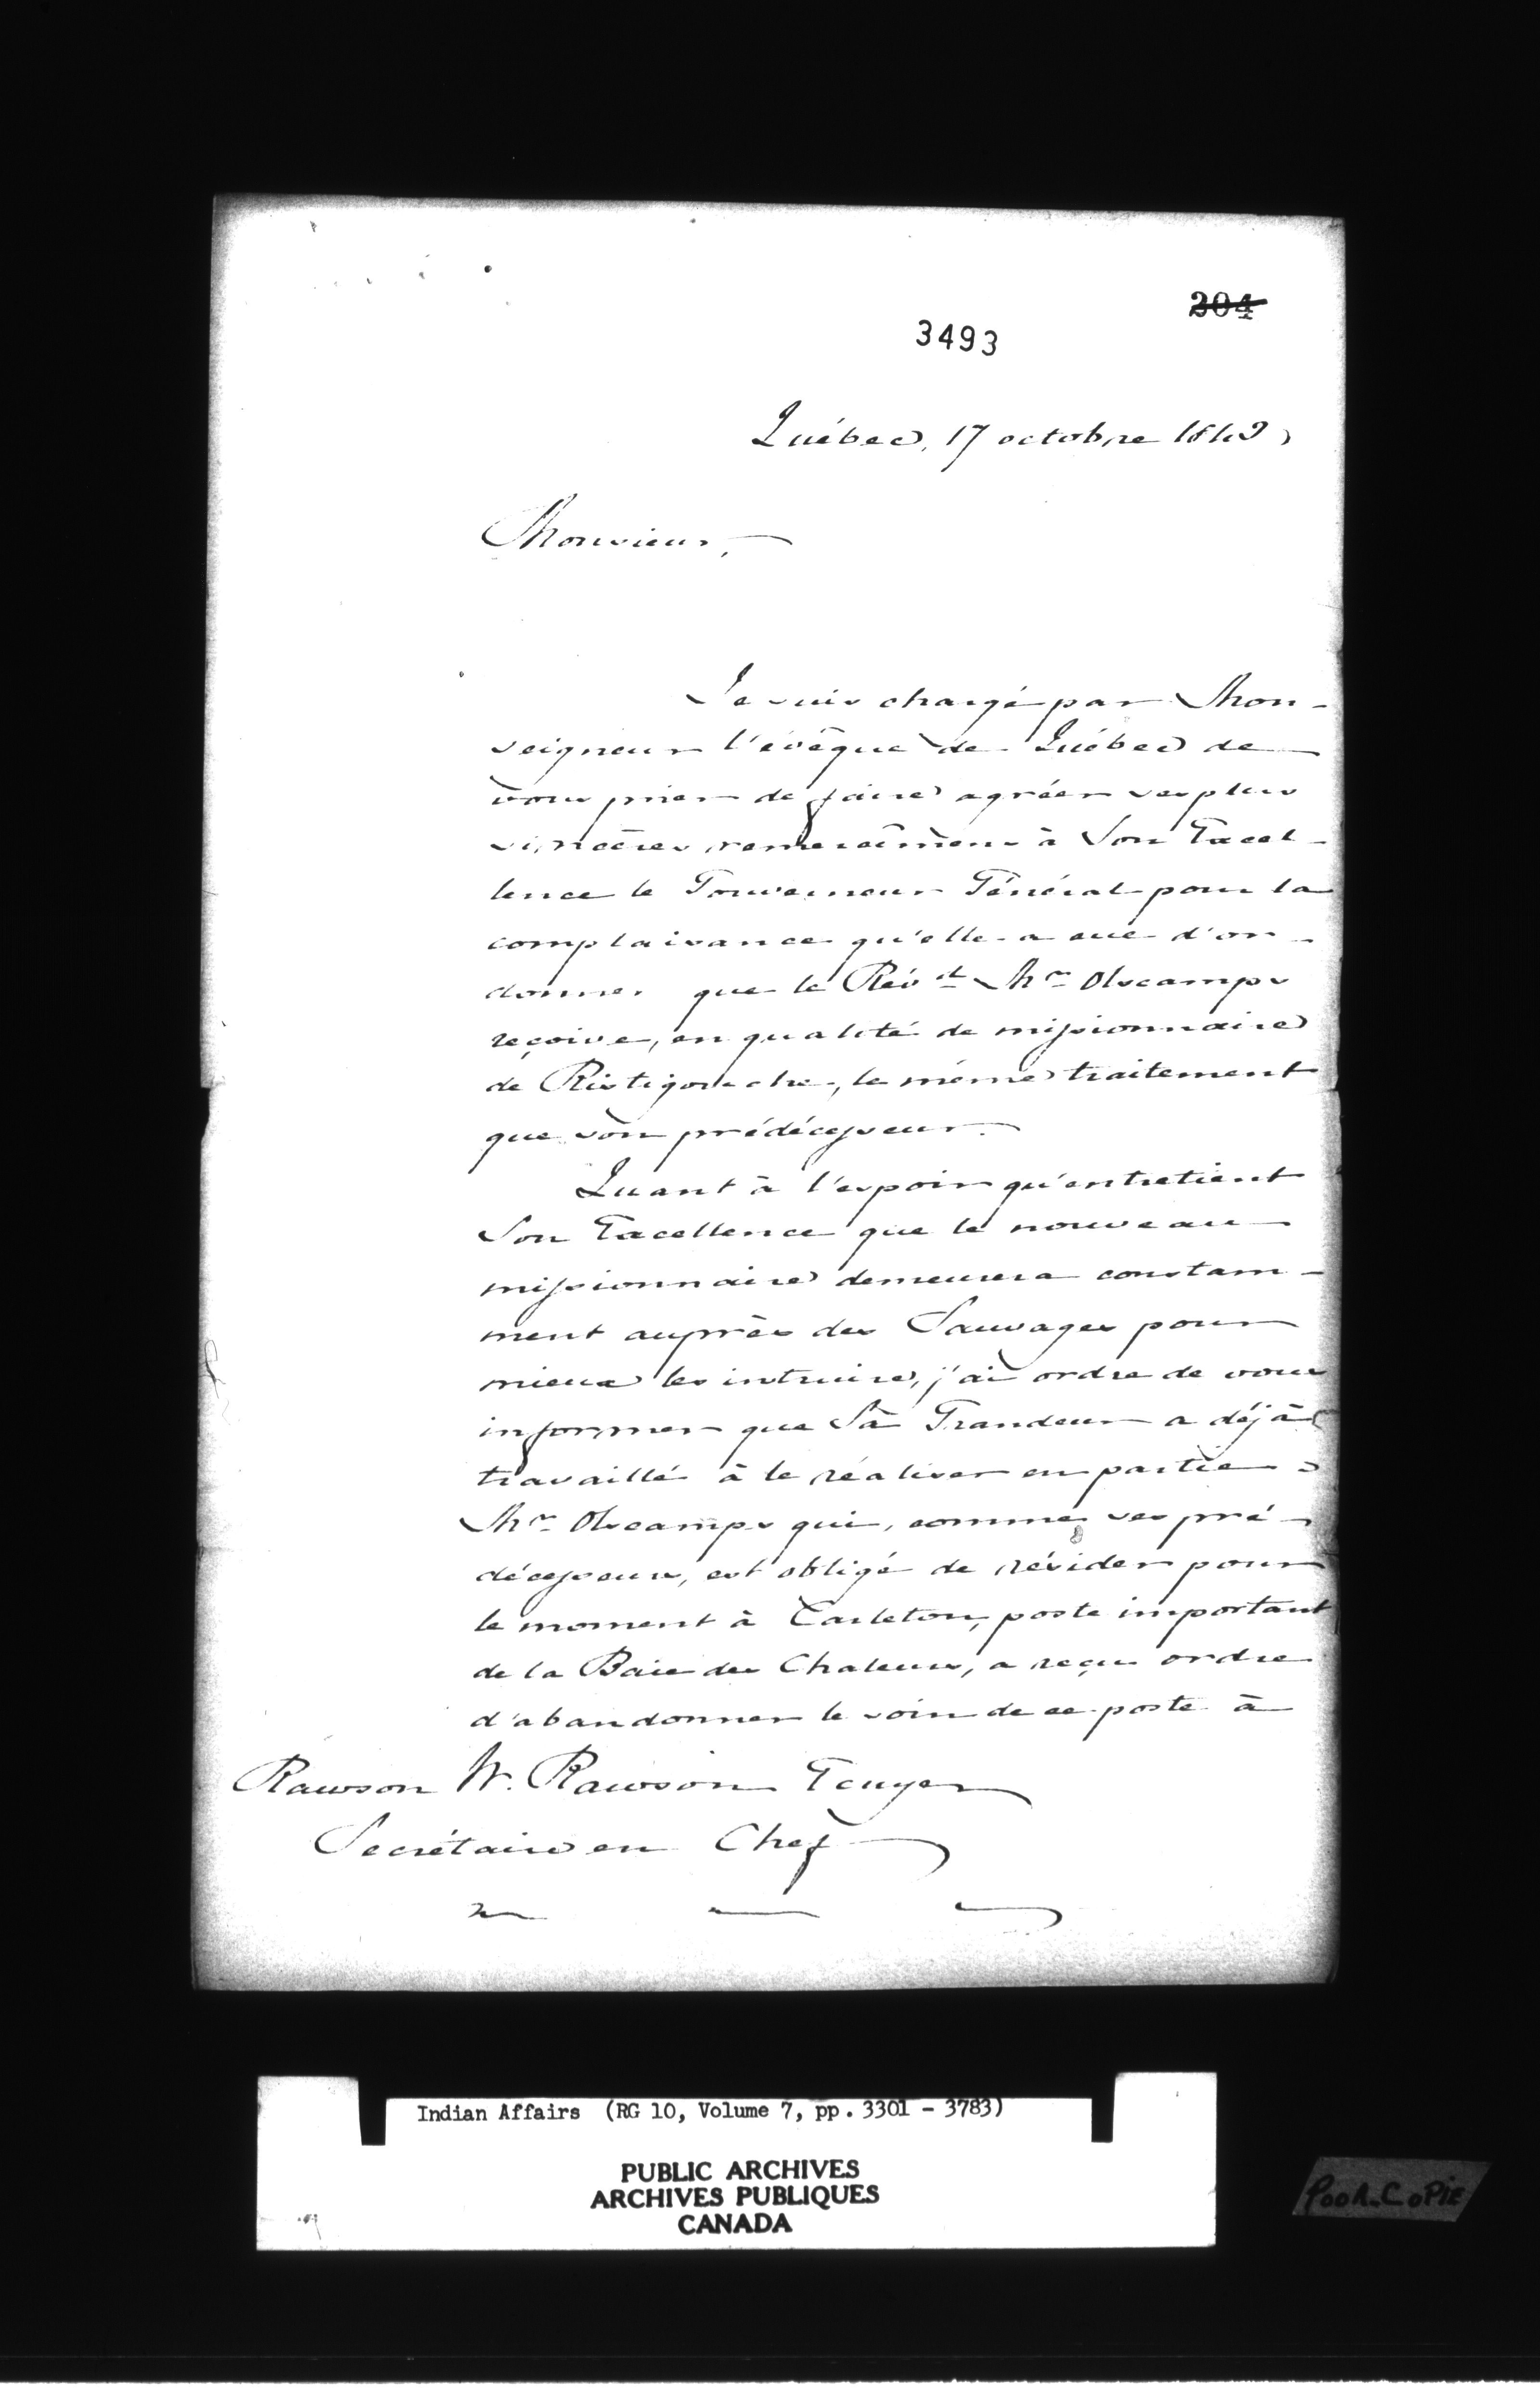 204
3493
Québec, 17 octobre 1843
Monsieur,
Je suis chargé par Mon-
seigneur l'évêque de Québec de
vous prier de faire agréer ses plus
sincères remercîmens à Son Excel-
lence le Gouverneur Général pour la
complaisance qu'elle a eue d'or-
donner que le Rév.d Mr Olscamps
reçoive, en qualité de missionnaire
de Ristigouche, le même traitement
que son prédécesseur.
Quant à l'espoir qu'entretient
Son Excellence que le nouveau
missionnaire demeurera constam-
ment auprès des Sauvages pour
mieux les intruire, j'ai ordre de vous
informer que Sa Grandeur a déjà
travaillé à le réaliser en partie
Mr Olscamps qui, comme ses pré-
décesseurs, est obligé de résider pour
le moment à Carleton, poste important
de la Baie des Chaleurs, a reçu ordre
d'abandonner le soin de ce poste à
Rawson W. Rawson Ecuyer
Secrétaire en Chef
Indian Affairs (RG 10, Volume 7, pp. 3301 - 3783)
PUBLIC ARCHIVES
ARCHIVES PUBLIQUES
CANADA
POOR COPIE